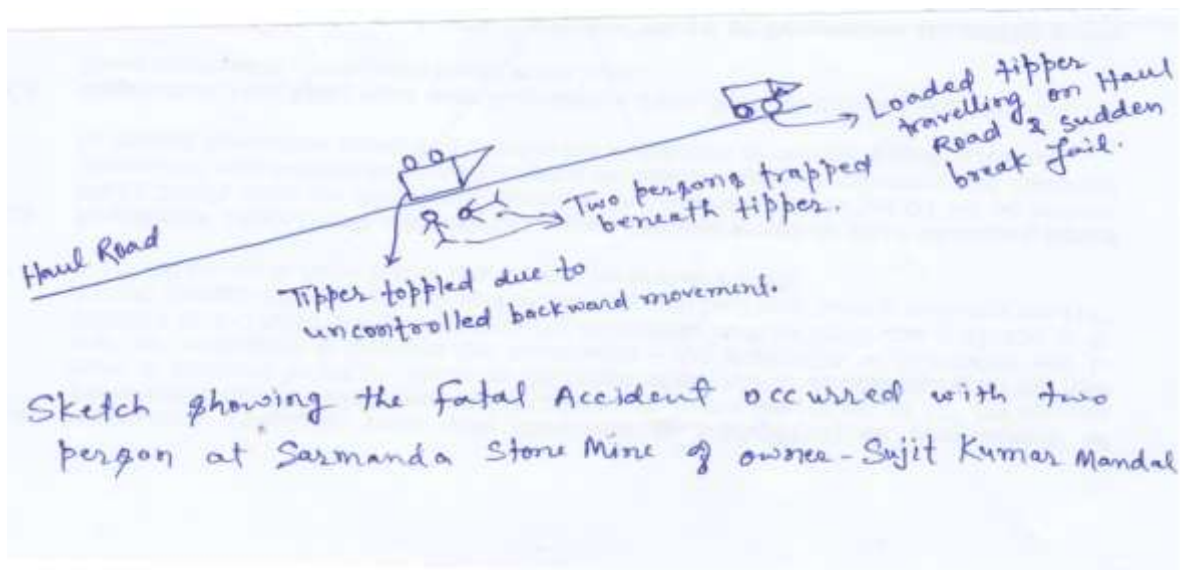 Loaded tipper
travelling on Haul
Road & sudden
break fail.
Two persons trapped
beneath tipper.
Haul Road
Tipper toppled due to
uncontrolled backward movement.
Sketch showing the Fatal Accident occurred with two
person at Sarmanda Stone Mine of owner - Sujit Kumar Mandal